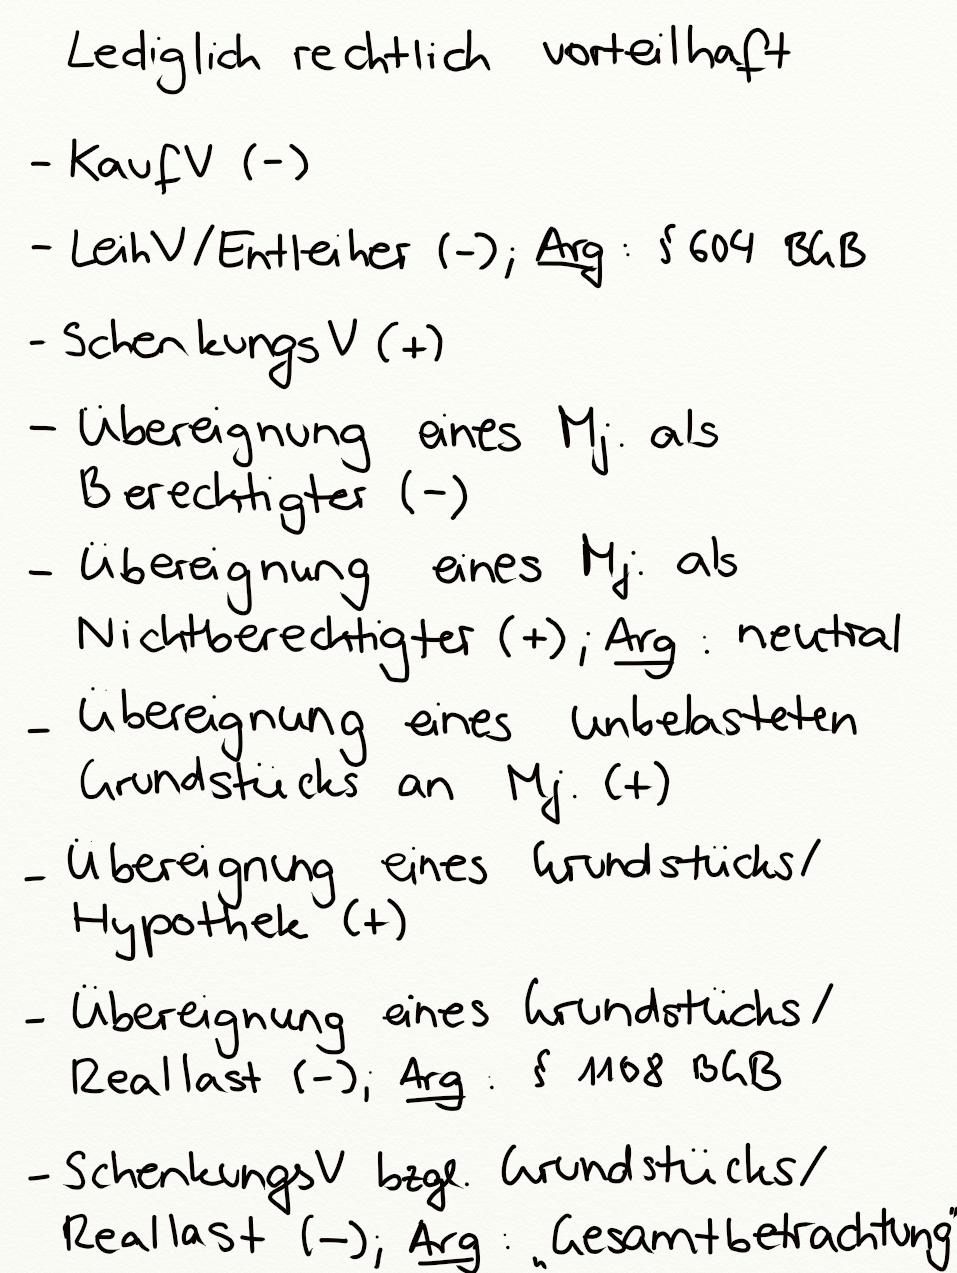 Lediglich rechtlich vorteilhaft
- KaufV (-)
- LeihV/Entleiher (-); Arg : § 604 BGB
- SchenkungsV (+)
- Übereignung eines Mj. als
Berechtigter (-)
- Übereignung eines Mj. als
Nichtberechtigter (+); Arg : neutral
- Übereignung eines unbelasteten
Grundstücks an Mj. (+)
- Übereignung eines Grundstücks/
Hypothek (+)
- Übereignung eines Grundstücks/
Reallast (-); Arg : § 1108 BGB
- SchenkungsV bzgl. Grundstücks/
Reallast (-); Arg : „Gesamtbetrachtung"